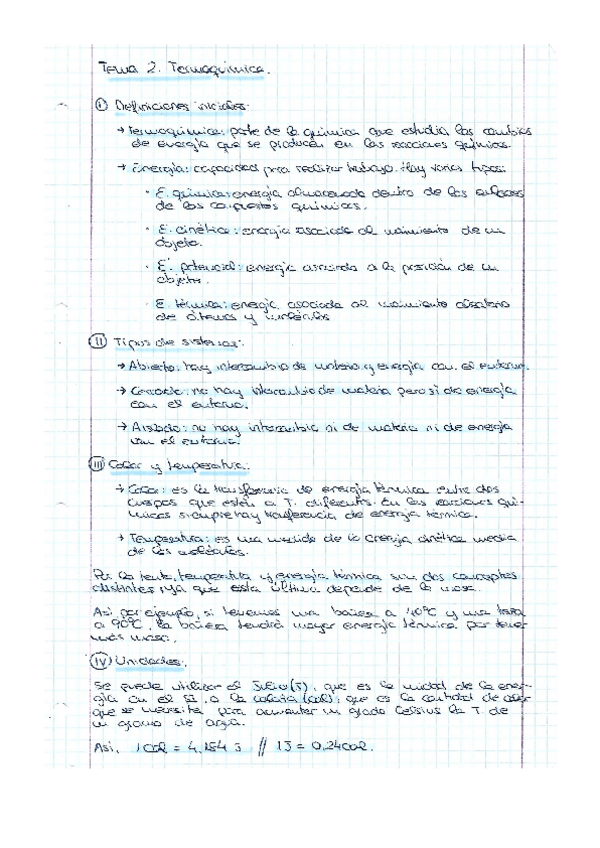 Tema 2. Termoquímica.
I Definiciones iniciales:
→ Termoquímica: parte de la química que estudia los cambios
de energía que se producen en las reacciones químicas.
→ Energía: capacidad para realizar trabajo. Hay varios tipos:
· E. química: energía almacenada dentro de los enlaces
de los compuestos químicos.
· E. cinética: energía asociada al movimiento de un
objeto.
· E. potencial: energía asociada a la posición de un
objeto.
· E. térmica: energía asociada al movimiento aleatorio
de átomos y moléculas
II Tipos de sistemas:
→ Abierto: hay intercambio de materia y energía con el entorno.
→ Cerrado: no hay intercambio de materia pero si de energía
con el entorno.
→ Aislado: no hay intercambio ni de materia ni de energía
con el entorno.
III Calor y temperatura:
→ Calor: es la transferencia de energía térmica entre dos
cuerpos que están a T. diferentes. En las reacciones quí-
micas siempre hay transferencia de energía térmica.
→ Temperatura: es una medida de la energía cinética media
de las moléculas.
Por lo tanto, temperatura y energía térmica son dos conceptos
distintos ya que esta última depende de la masa.
Así por ejemplo, si tenemos una bañera a 40ºC y una taza
a 90ºC, la bañera tendrá mayor energía térmica por tener
más masa.
IV Unidades:
Se puede utilizar el Julio (J), que es la unidad de la ener-
gía en el SI, o la caloría (cal), que es la cantidad de calor
que se necesita para aumentar un grado Celsius la T. de
un gramo de agua.
Así, 1 cal = 4,184 J // 1J = 0,24 cal.